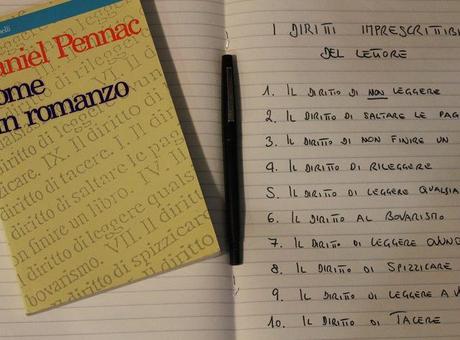 elli
aniel Pennac
ome
n romanzo
diritto di leggere
icare. IX. Il diritto di
diritto di tacere. I. Il diri
diritto di saltare le pag
on finire un libro. IV. Il
diritto di leggere quals
bovarismo. VII. Il diritto
diritto di spizzicare
I DIRITTI IMPRESCRITTIBI
DEL LETTORE
1. IL DIRITTO DI NON LEGGERE
2. IL DIRITTO DI SALTARE LE PAG
3. IL DIRITTO DI NON FINIRE UN
4. IL DIRITTO DI RILEGGERE
5. IL DIRITTO DI LEGGERE QUALSIA
6. IL DIRITTO AL BOVARISMO
7. IL DIRITTO DI LEGGERE OVUNQ
8. IL DIRITTO DI SPIZZICARE
9. IL DIRITTO DI LEGGERE A V
10. IL DIRITTO DI TACERE